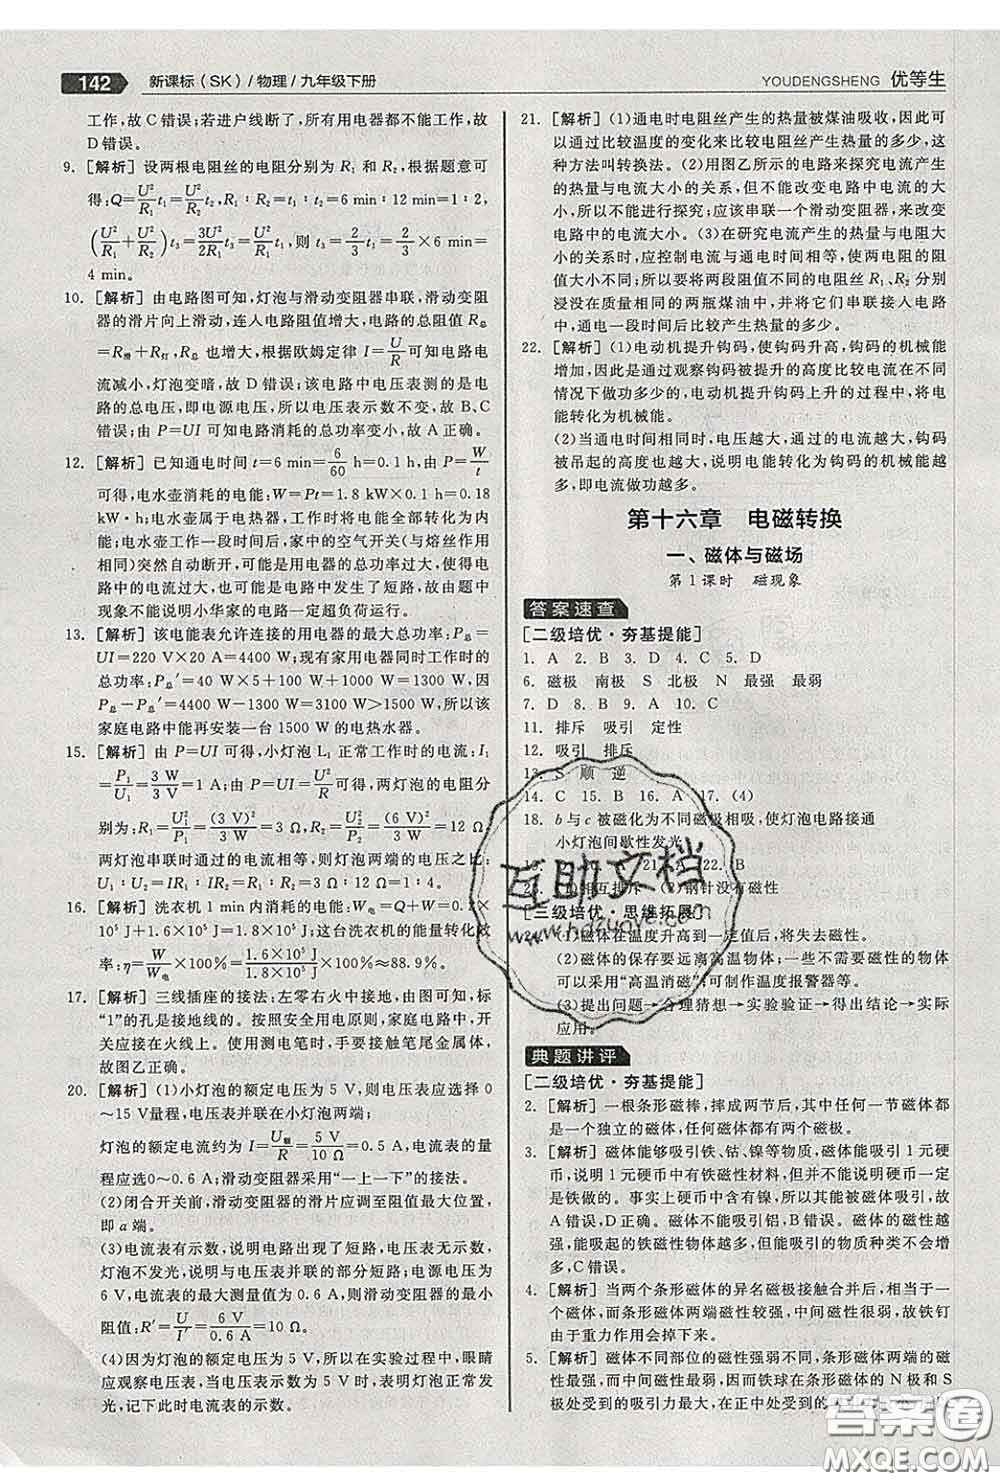 142 新课标(SK)/物理/九年级下册
YOUDENGSHENG 优等生
工作,故 C 错误;若进户线断了,所有用电器都不能工作,故
D 错误。
9. [解析] 设两根电阻丝的电阻分别为 R₁ 和 R₂,根据题意可
得:Q=U²/R₁ t₁=U²/R₂ t₂,R₁∶R₂=t₁∶t₂=6 min∶12 min=1∶2,
(U²/R₁+U²/R₂)t₃=3U²/2R₁ t₃=U²/R₁ t₁,则 t₃=2/3 t₁=2/3×6 min=
4 min。
10. [解析] 由电路图可知,灯泡与滑动变阻器串联,滑动变阻
器的滑片向上滑动,连入电路阻值增大,电路的总阻值 R总
=R滑+R灯,R总也增大,根据欧姆定律 I=U/R 可知电路电
流减小,灯泡变暗,故 D 错误;该电路中电压表测的是电
路的总电压,即电源电压,所以电压表示数不变,故 B、C
错误;由 P=UI 可知电路消耗的总功率变小,故 A 正确。
12. [解析] 已知通电时间 t=6 min=6/60 h=0.1 h,由 P=W/t
可得,电水壶消耗的电能:W=Pt=1.8 kW×0.1 h=0.18
kW·h;电水壶属于电热器,工作时将电能全部转化为内
能;电水壶正常工作时,家中的空气开关(与熔丝作用
相同)突然自动断开,可能是使用的用电器的总功率过大,使
电路中的电流过大,也可能是电路中发生了短路,故题中
现象不能说明小华家的电路一定超负荷运行。
13. [解析] 该电能表允许连接的用电器的最大总功率:P总
=UI=220 V×20 A=4400 W;现有家用电器同时工作时的
总功率:P总′=40 W×5+100 W+1000 W=1300 W,因
P总-P总′=4400 W-1300 W=3100 W>1500 W,所以该
家庭电路中能再安装一台 1500 W 的电热水器。
15. [解析] 由 P=UI 可得,小灯泡 L₁ 正常工作时的电流:I₁
=P₁/U₁=3 W/3 V=1 A;由 P=UI=U²/R 可得,两灯泡的电阻分
别为:R₁=U₁²/P₁=(3 V)²/3 W=3 Ω,R₂=U₂²/P₂=(6 V)²/3 W=12 Ω,
两灯泡串联时通过的电流相等,则灯泡两端的电压之比:
U₁∶U₂=IR₁∶IR₂=R₁∶R₂=3 Ω∶12 Ω=1∶4。
16. [解析] 洗衣机 1 min 内消耗的电能:W电=Q+W=0.2×
10⁵ J+1.6×10⁵ J=1.8×10⁵ J;这台洗衣机的能量转化效
率:η=W/W电=1.6×10⁵ J/1.8×10⁵ J≈88.9%。
17. [解析] 三线插座的接法:左零右火中接地,由图可知,标
“1”的孔是接地线的。按照安全用电原则,家庭电路中,开
关应接在火线上。使用测电笔时,手要接触笔尾金属体,
故图乙正确。
20. [解析] (1)小灯泡的额定电压为 5 V,则电压表应选择 0
~15 V量程,电压表并联在小灯泡两端;
灯泡的额定电流约为 I=U额/R=5 V/10 Ω=0.5 A,电流表的量
程应选择 0~0.6 A;滑动变阻器采用“一上一下”的接法。
(2)闭合开关前,滑动变阻器的滑片应调至阻值最大处,
即 a 端。
(3)电流表有示数,说明电路出现了短路,电压表无示数,
灯泡不发光,说明与电压表并联的部分短路;电源电压为
6 V,此时电流表的示数为 0.6 A,则滑动变阻器的最大
阻值:R′=U/I′=6 V/0.6 A=10 Ω。
(4)因为灯泡的额定电压为 5 V,所以在实验过程中,眼睛
应观察电压表,当电压表示数为 5 V 时,灯泡正常发
光,记下此时电流表的示数。
21. [解析] (1)通电时电阻丝产生的热量被煤油吸收,因此可
以通过比较温度的变化来比较电热的多少,这
种方法叫转换法。(2)用图乙所示的电路来探究电流产生
的热量与电流大小的关系,但不能改变电路中电流的大
小,所以不能进行探究;应该串联一个滑动变阻器,来改变
电路中电流的大小。(3)在研究电流产生的热量与电阻大
小的关系时,应控制电流与通电时间相等,而使电阻丝的
阻值大小不同;所以要将两段阻值不同的电阻丝 R₁、R₂ 分别
浸没在质量相同的两瓶煤油中,并将它们串联接入电路
中,通电一段时间后比较产生热量的多少。
22. [解析] (1)电动机提升钩码,使钩码升高,钩码的机械能
增加,因此是通过观察钩码被提升的高度比较电流在不同
情况下做功多少的,电动机提升钩码上升的过程中,将电
能转化为机械能。
(2)当通电时间相同时,电压越大,通过的电流越大,钩码
被吊起的高度也越大,说明电能转化为钩码的机械能越
多,即电流做功越多。
第十六章 电磁转换
一、磁体与磁场
第 1 课时 磁现象
答案速查
[二级培优·夯基提能]
1. A 2. D 3. D 4. C 5. D
6. 磁极 南极 S 北极 N 最强 最弱
7. D 8. B 9. A 10. C
11. 排斥 吸引 定性
12. 吸引 排斥
13. S 顺 逆
14. C 15. B 16. A 17. (4)
18. b 与 c 被磁化为不同磁极相吸,使灯泡电路接通
小灯泡间歇性发光
22. B
23. (1)相互排斥 (2)钢针没有磁性
[三级培优·思维拓展]
(1)磁体在温度升高到一定值后,将失去磁性。
(2)磁体的保存要远离高温物体;一些不需要磁性的物体
可以采用“高温消磁”;可制作温度报警器等。
(3)提出问题→合理猜想→实验验证→得出结论→实际
应用。
典题讲评
[二级培优·夯基提能]
2. [解析] 一根条形磁棒,摔成两节后,其中任何一节磁体都是
一个独立的磁体,任何磁体都有两个磁极。
3. [解析] 磁体能够吸引铁、钴、镍等物质,磁体能吸引 1 元硬
币,说明 1 元硬币中有铁磁性材料,但并不能说明硬币一定
是铁做的。事实上硬币中含有镍,所以可以被磁体吸引,故
A 错误,D 正确。磁体不能吸引铝,B 错误。磁体的磁性有
强有弱,能吸起的铁磁性物质的多少与磁体磁性的强弱有
关,C 错误。
4. [解析] 当两个条形磁体的异名磁极接触合并后,形成了一
个磁体,而条形磁体两端磁性较强,中间磁性很弱,故铁钉
由于重力作用会掉下来。
5. [解析] 磁体不同部位的磁性强弱不同,条形磁体两端的磁
性最强,中间部位的磁性最弱,因而铁球在对应的 N 极和 S
极处受到的吸引力最大,在中间处受到的
互助文档
www.hdzuoye.com
答案圈
MXQE.COM